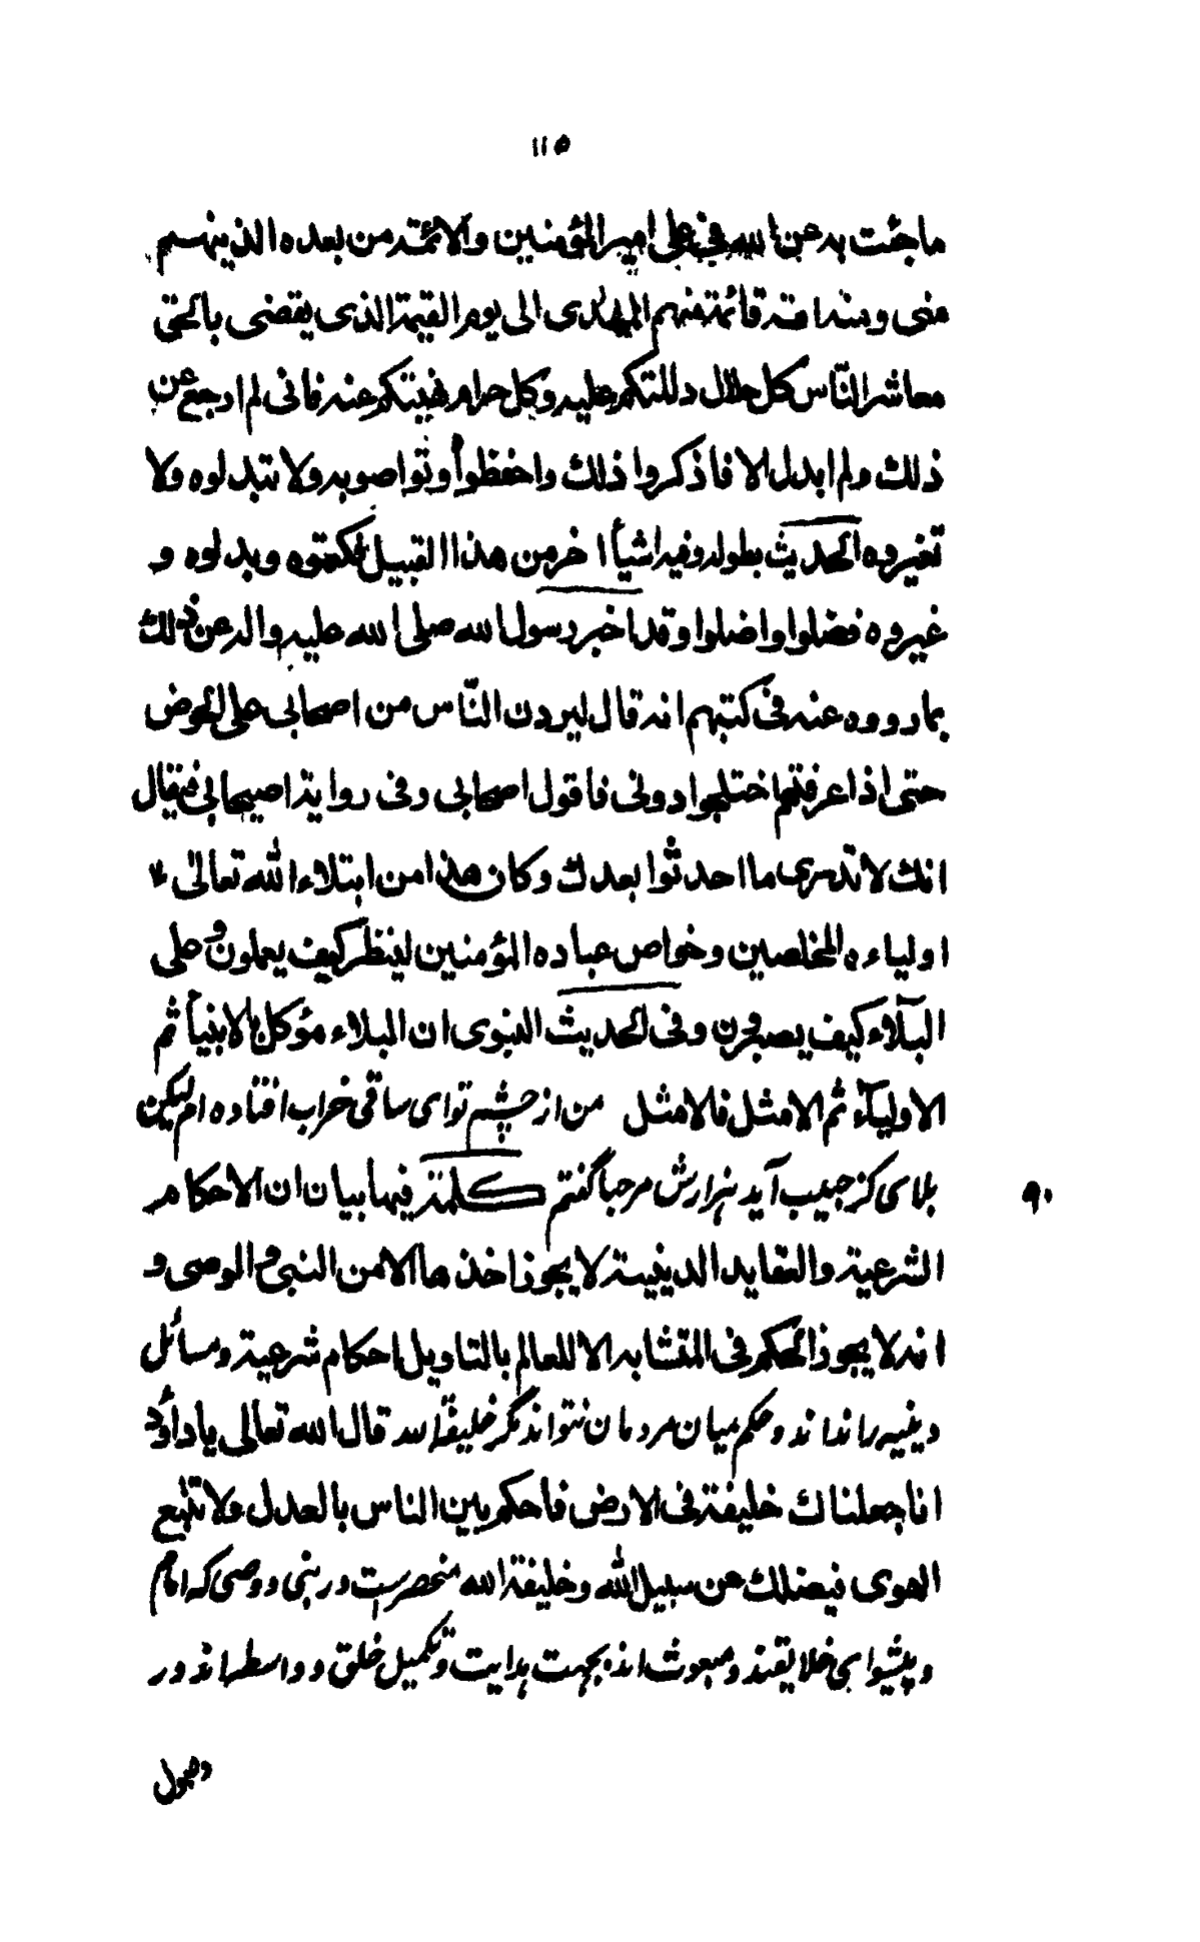 ١١٥
ما جئت به عن الله فی علی امیر المؤمنین والائمة من بعده الذینهم
منی ومنه امة قائمة منهم المهدی الی یوم القیمة الذی یقضی بالحق
معاشر الناس کل حلال دللتکم علیه وکل حرام نهیتکم عنه فانی لم ارجع عن
ذلك ولم ابدل الا فاذکروا ذلك واحفظوا وتواصوبه ولا تبدلوه ولا
تغیروه الحدیث بطوله وفیه اشیأ اخر من هذا القبیل فکتموه وبدلوه و
غیروه فضلوا واضلوا وقد اخبر رسول الله صلی الله علیه واله عن ذلك
بما رووه عنه فی کتبهم انه قال لیردن النّاس من اصحابی علی الحوض
حتی اذا عرفتهم اختلجوا دونی فاقول اصحابی وفی روایة اصیحابی فیقال
انك لا تدری ما احدثوا بعدك وکان هذا من ابتلاء الله تعالی
اولیاءه المخلصین وخواص عباده المؤمنین لینظر کیف یعملون وعلی
البلآء کیف یصبرون وفی الحدیث النبوی ان البلاء مؤکل بالانبیأ ثم
الاولیآء ثم الامثل فالامثل من از چشم تو ای ساقی خراب افتاده ام لیکن
بلای کز حبیب آید هزارش مرحبا گفتم کلمة فیها بیان ان الاحکام
٩٠
الشرعیة والعقاید الدینیة لا یجوز اخذها الا من النبی والوصی و
انه لا یجوز الحکم فی المتشابه الا للعالم بالتاویل احکام شرعیة ومسائل
دینیه را نداند وحکم میان مردمان نتواند مگر خلیفة الله قال الله تعالی یا داود
انا جعلناك خلیفة فی الارض فاحکم بین الناس بالعدل ولا تتبع
الهوی فیضلك عن سبیل الله وخلیفة الله منحصرست در نبی ووصی که امام
وپیشوای خلایقند ومبعوث اند بجهت هدایت وتکمیل خلق وواسطه اند در
وصول